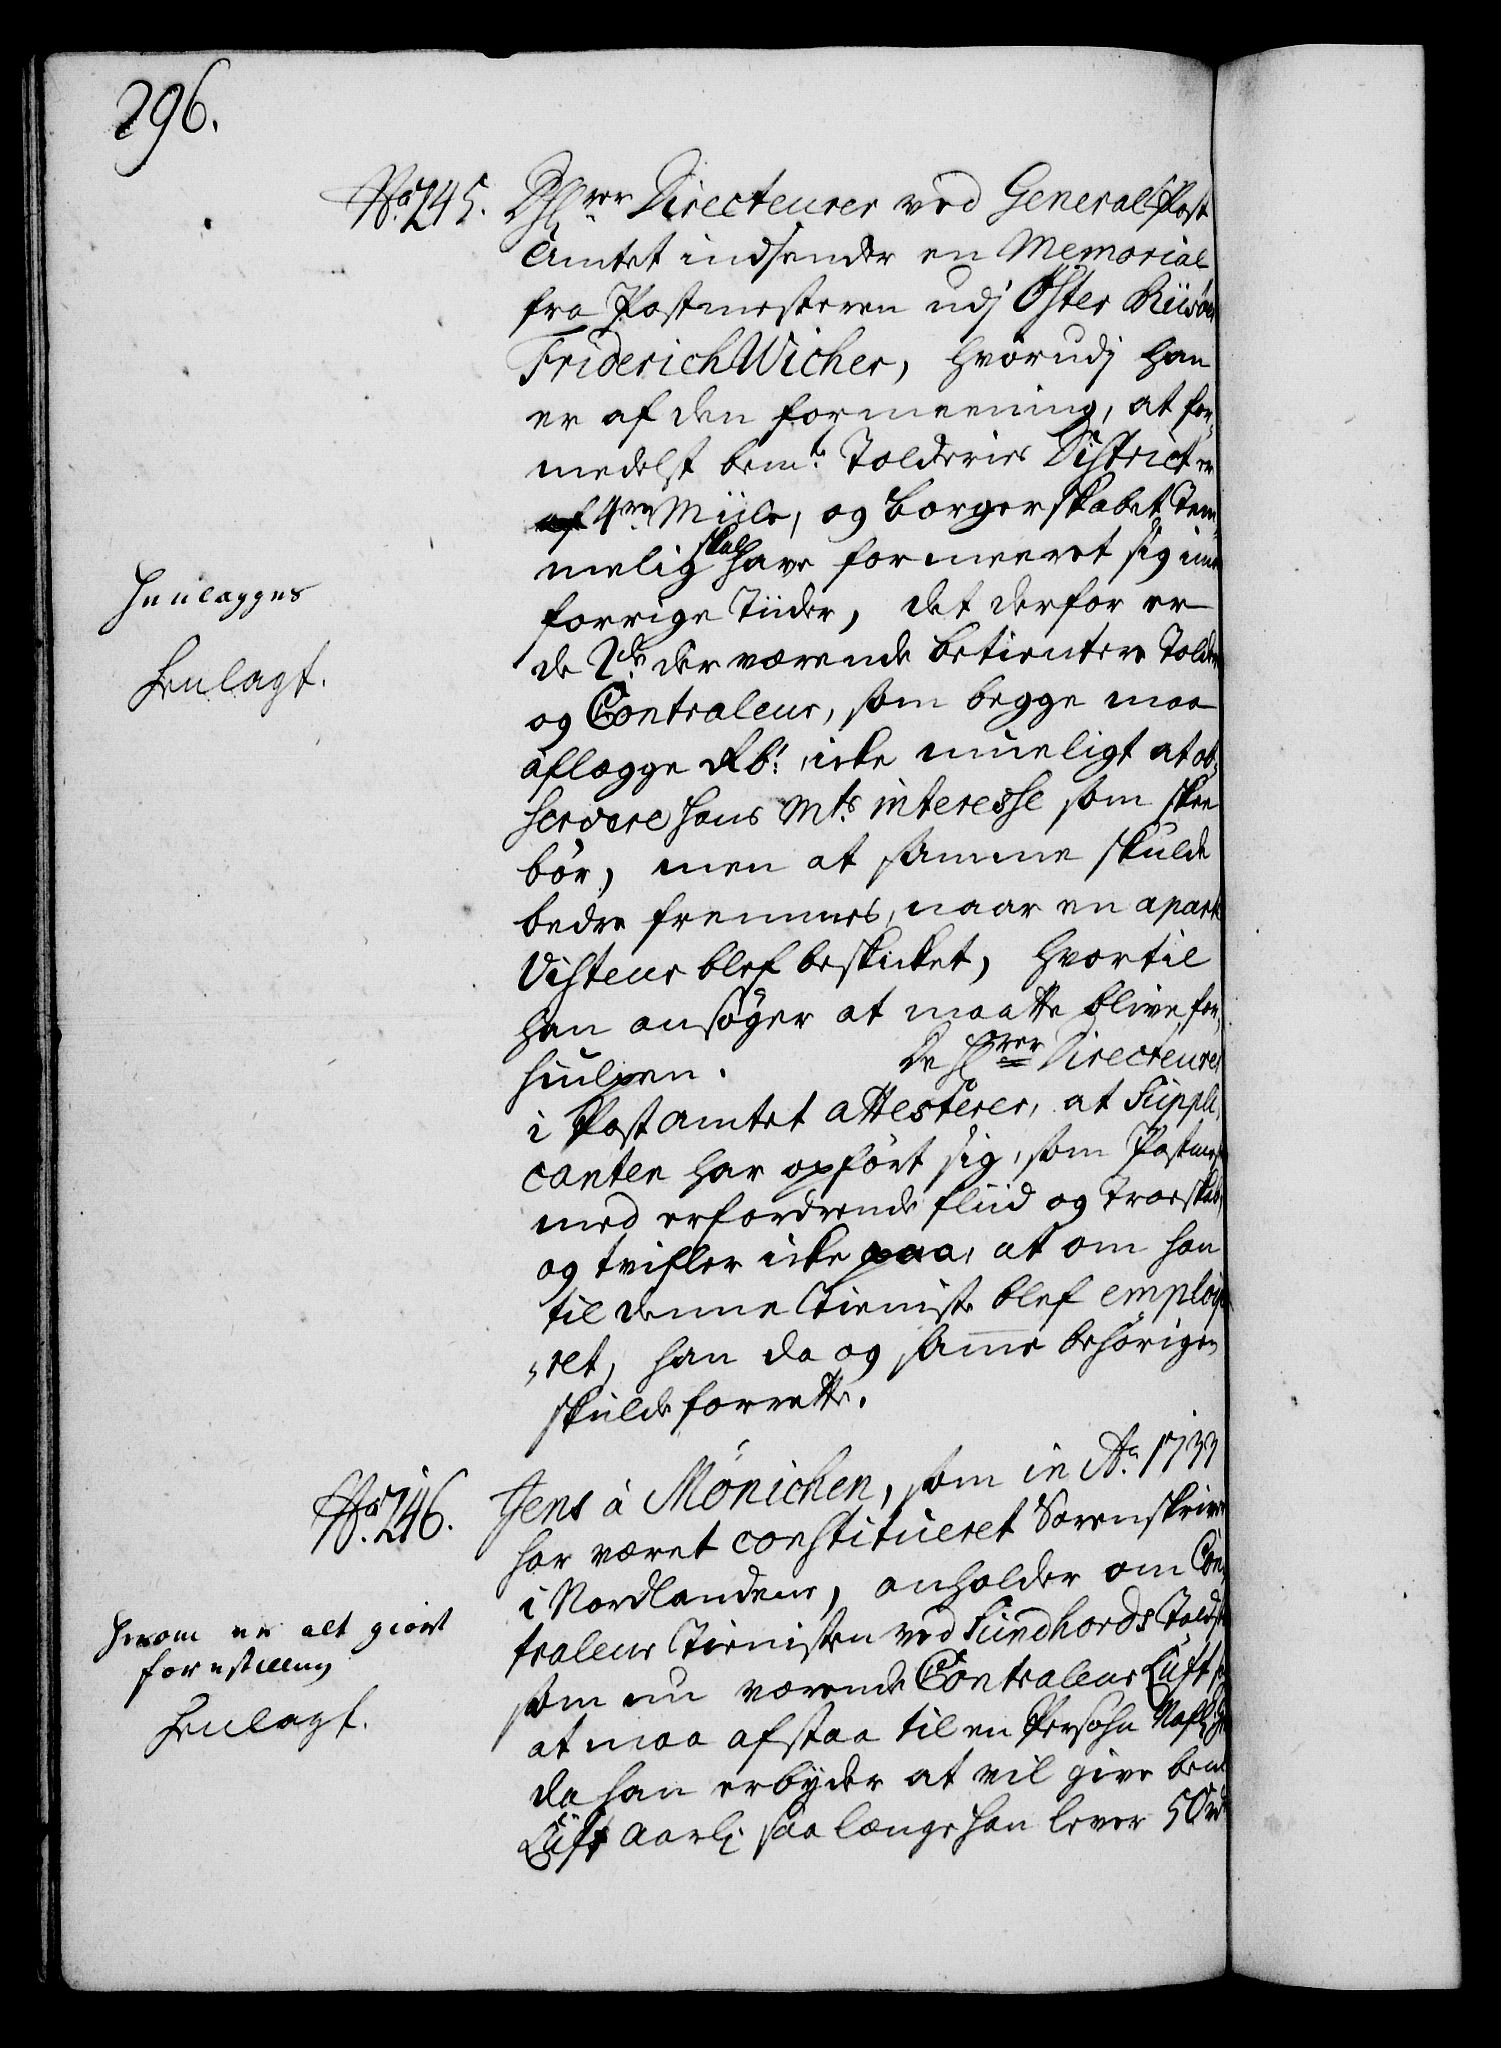 296.
No. 245. D Hrer Directeurer ved General Post
Amtet indsender en Memorial
fra Postmesteren udj Öster Riisöer
Friderich Wicher, hvorudj han
er af den formeening, at for-
medelst bemte Tolderies District er
af 4re Miile, og borgerskabet Tem-
melig skal have formeeret sig imod
forrige Tiider, det derfor er
de 2de der værende betientere Tolder
og Contraleur, som begge maa
aflegge Rb: icke mueligt at ob-
servere hans Mts interesse som skee
bör, men at samme skulde
bedre fremmes, naar en apart
Visiteur blef beskicket, hvortil
han ansöger at maatte blive for-
hiulpen. De Hrer Directeurer
i Postamtet attesterer, at Suppli-
canten har opfört sig, som Postmest
med erfordrende fliid og Troeskab,
og tvifler icke paa, at om han
til denne Tieniste blef emploije-
ret, han da og samme behörigen
skulde forrette.
Henlegges
Henlagt.
No. 246. Jens à Mönichen, som in Ao 1733
har været constitueret Sorenskriver
i Nordlandene, anholder om Con-
traleur Tienisten ved Sundhords Tolds
som nu værende Contraleur Lüft
at maa afstaa til en Persohn Nafl:
da han erbyder at vil give bemt
Lüft aarl: saa længe han lever 50 rd
Herom er alt giort
forestilling
Henlagt.